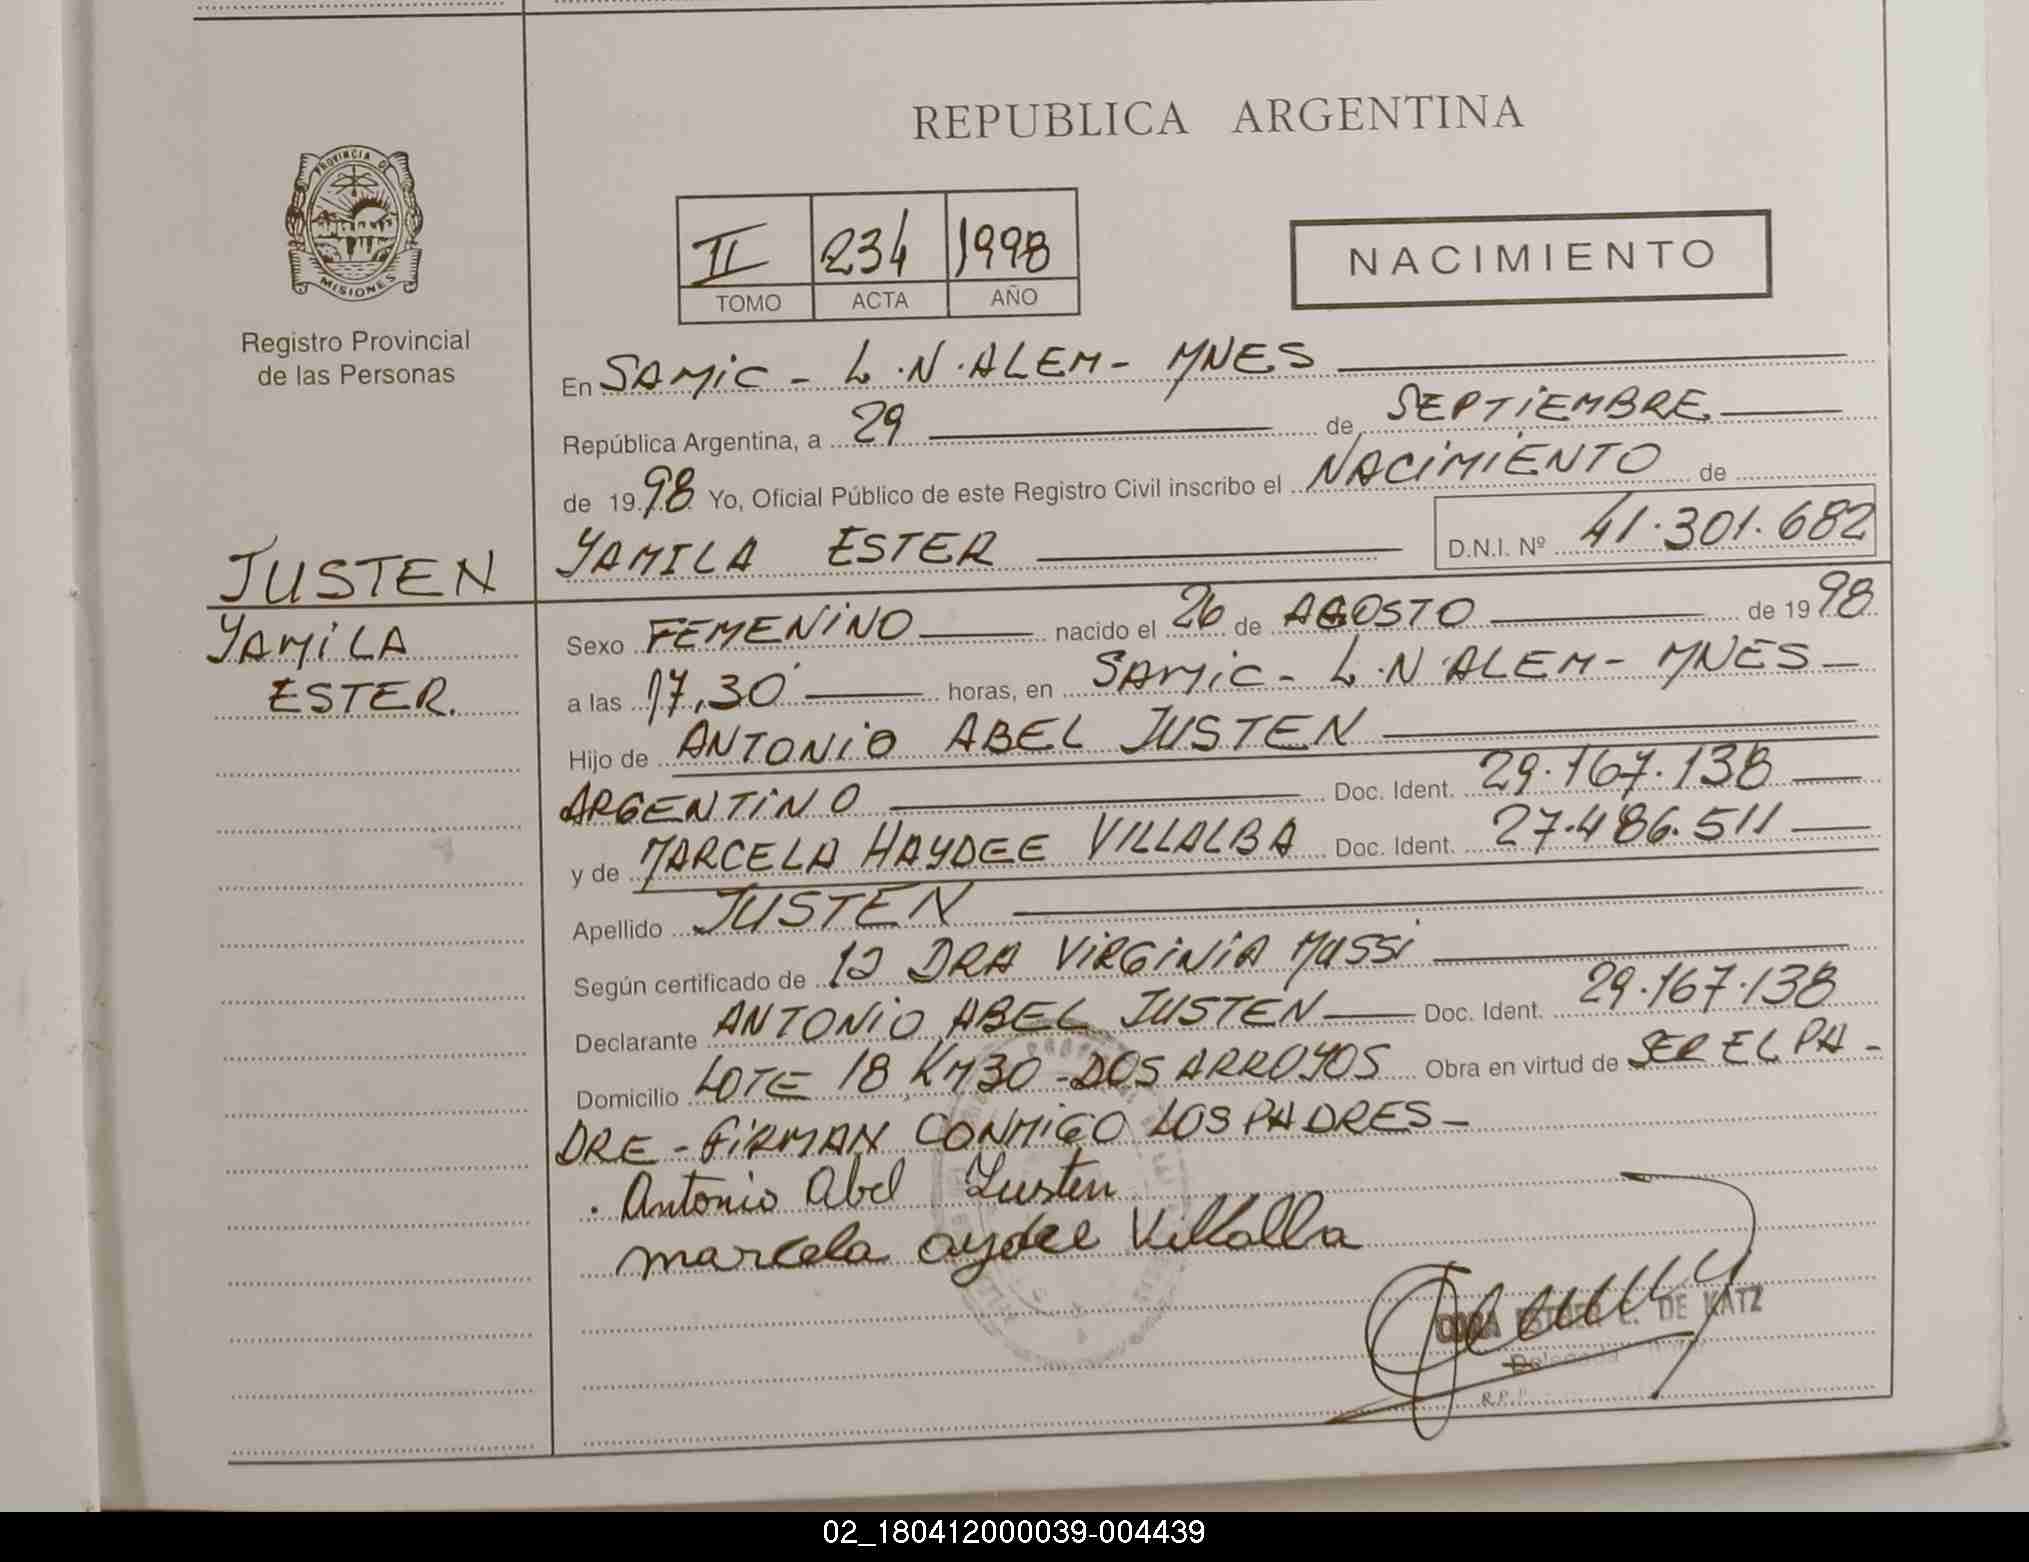 REPUBLICA ARGENTINA
PROVINCIA DE
MISIONES
Registro Provincial
de las Personas
II 234 1998
TOMO ACTA AÑO
NACIMIENTO
En SAMIC - L.N.ALEM - MNES
República Argentina, a 29 de SEPTIEMBRE
de 1998 Yo, Oficial Público de este Registro Civil inscribo el NACIMIENTO de
YAMILA ESTER D.N.I. Nº 41.301.682
JUSTEN
YAMILA
ESTER.
Sexo FEMENINO nacido el 26 de AGOSTO de 1998
a las 17,30 horas, en SAMIC - L.N ALEM - MNES -
Hijo de ANTONIO ABEL JUSTEN
ARGENTINO Doc. Ident. 29.167.138
y de MARCELA HAYDEE VILLALBA Doc. Ident. 27.486.511
Apellido JUSTEN
Según certificado de DRA VIRGINIA MUSSI
Declarante ANTONIO ABEL JUSTEN Doc. Ident. 29.167.138
Domicilio LOTE 18 KM30 - DOS ARROYOS Obra en virtud de SER EL PA -
DRE - FIRMAN CONMIGO LOS PADRES -
Antonio Abel Justen
marcela aydee Villalba
ESTHER C. DE KATZ
Delegada
02_180412000039-004439